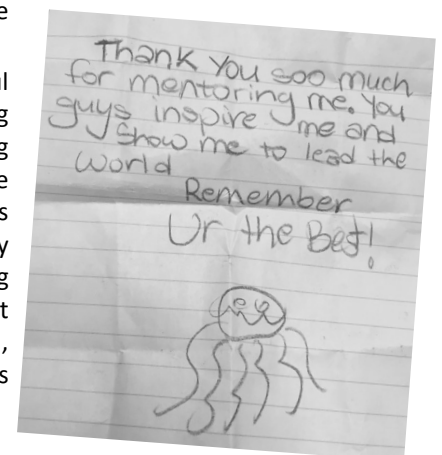 Thank You soo much
for mentoring me. You
guys inspire me and
Show me to lead the
World
Remember
Ur the Best!